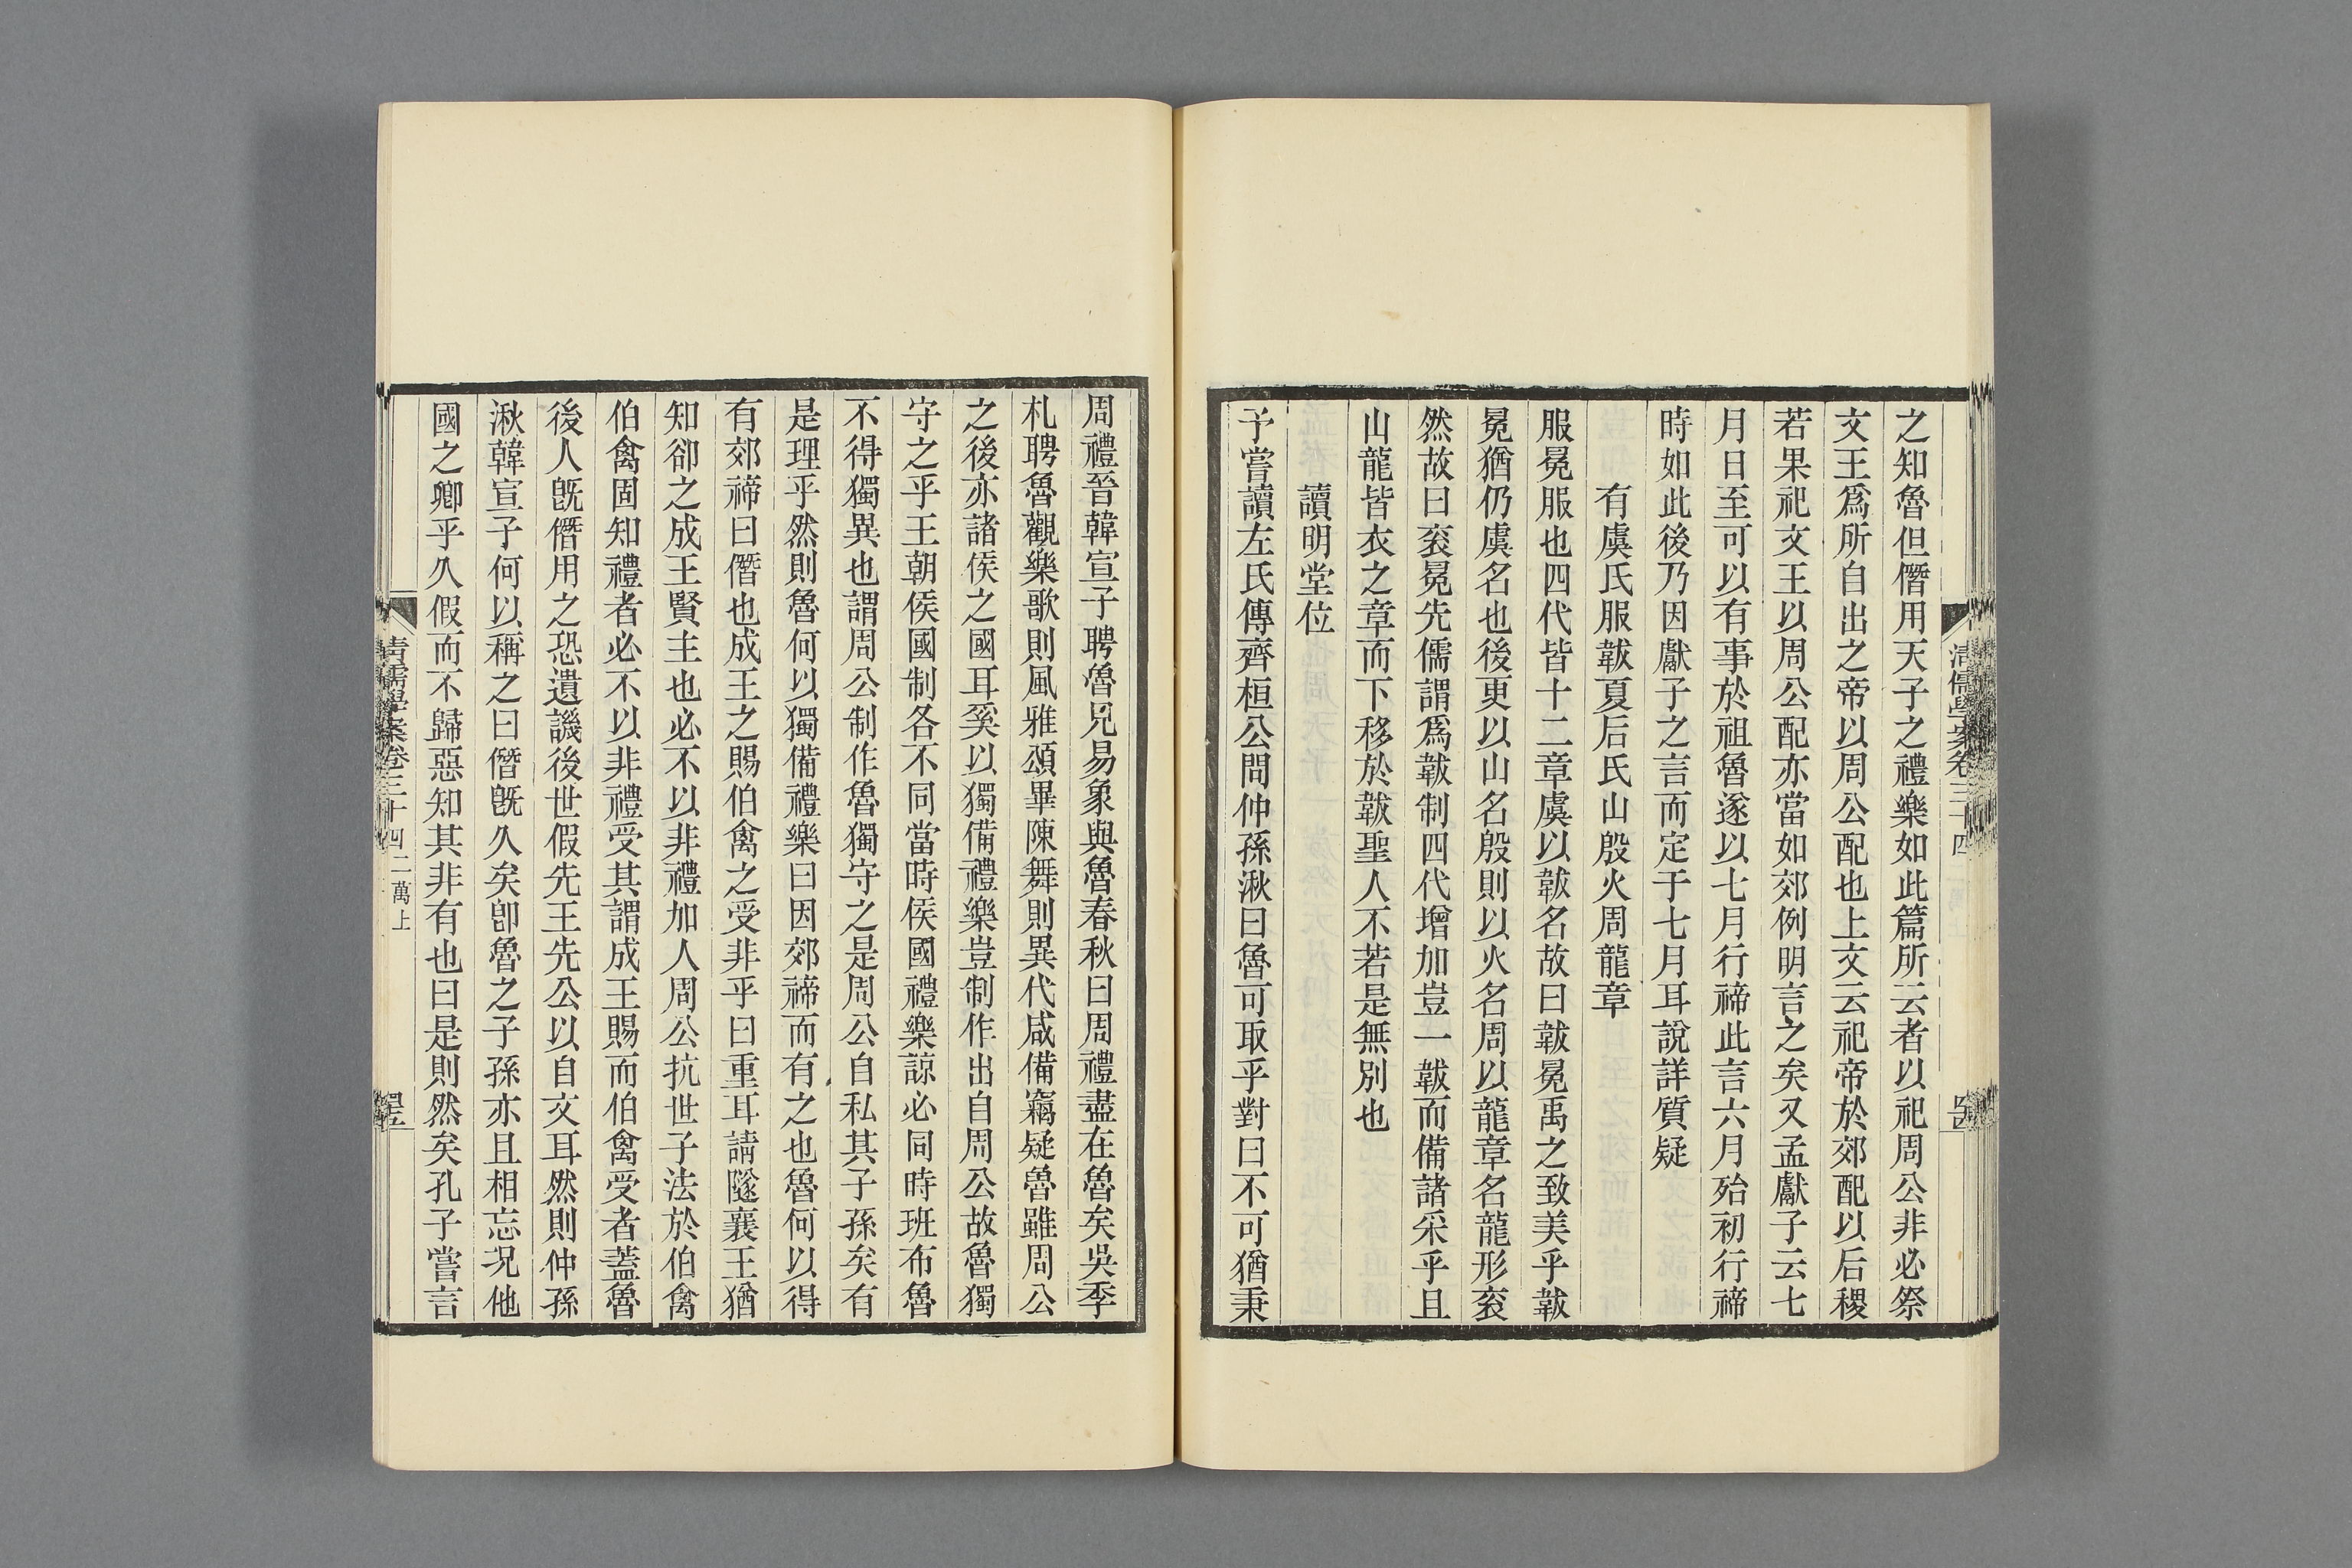 之知魯但僭用天子之禮樂如此篇所云者以祀周公非必祭
文王爲所自出之帝以周公配也上文云祀帝於郊配以后稷
若果祀文王以周公配亦當如郊例明言之矣又孟獻子云七
月日至可以有事於祖魯遂以七月行禘此言六月殆初行禘
時如此後乃因獻子之言而定于七月耳說詳質疑
有虞氏服韍夏后氏山殷火周龍章
服冕服也四代皆十二章虞以韍名故曰韍冕禹之致美乎韍
冕猶仍虞名也後更以山名殷則以火名周以龍章名龍形袞
然故曰袞冕先儒謂爲韍制四代增加豈一韍而備諸采乎且
山龍皆衣之章而下移於韍聖人不若是無別也
讀明堂位
予嘗讀左氏傳齊桓公問仲孫湫曰魯可取乎對曰不可猶秉
清儒學案卷三十四
周禮晉韓宣子聘魯見易象與魯春秋曰周禮盡在魯矣吳季
札聘魯觀樂歌則風雅頌畢陳舞則異代咸備竊疑魯雖周公
之後亦諸侯之國耳奚以獨備禮樂豈制作出自周公故魯獨
守之乎王朝侯國制各不同當時侯國禮樂諒必同時班布魯
不得獨異也謂周公制作魯獨守之是周公自私其子孫矣有
是理乎然則魯何以獨備禮樂曰因郊禘而有之也魯何以得
有郊禘曰僭也成王之賜伯禽之受非乎曰重耳請隧襄王猶
知卻之成王賢主也必不以非禮加人周公抗世子法於伯禽
伯禽固知禮者必不以非禮受其謂成王賜而伯禽受者蓋魯
後人旣僭用之恐遺譏後世假先王先公以自文耳然則仲孫
湫韓宣子何以稱之曰僭旣久矣卽魯之子孫亦且相忘況他
國之卿乎久假而不歸惡知其非有也曰是則然矣孔子嘗言
清儒學案卷三十四 二萬上